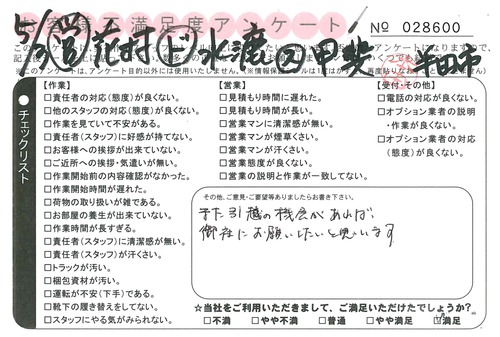 お客様不満足度アンケート
№ 028600
【作業】
□責任者の対応(態度)が良くない。
□他のスタッフの対応(態度)が良くない。
□作業を見ていて不安がある。
□責任者(スタッフ)に好感が持てない。
□お客様への挨拶が出来ていない。
□ご近所への挨拶・気遣いが無い。
□作業開始前の内容確認がなかった。
□作業開始時間が遅れた。
□荷物の取り扱いが雑である。
□お部屋の養生が出来ていない。
□作業時間が長すぎる。
□責任者(スタッフ)に清潔感が無い。
□責任者(スタッフ)が汗くさい。
□トラックが汚い。
□梱包資材が汚い。
□運転が不安(下手)である。
□靴下の履き替えをしてない。
□スタッフにやる気がみられない。
【営業】
□見積もり時間に遅れた。
□見積もり時間が長い。
□営業マンに清潔感が無い。
□営業マンが煙草くさい。
□営業マンが汗くさい。
□営業態度が良くない。
□営業の説明と作業が一致してない。
【受付・その他】
□電話の対応が良くない。
□オプション業者の説明
・作業が良くない。
□オプション業者の対応
(態度)が良くない。
●チェックリスト
その他、ご意見・ご要望等ありましたらお書き下さい。
また引越の機会があれば、
御社にお願いしたいと思います
☆当社をご利用いただきまして、ご満足いただけたでしょうか?
□不満 □やや不満 □普通 □やや満足 ☑満足